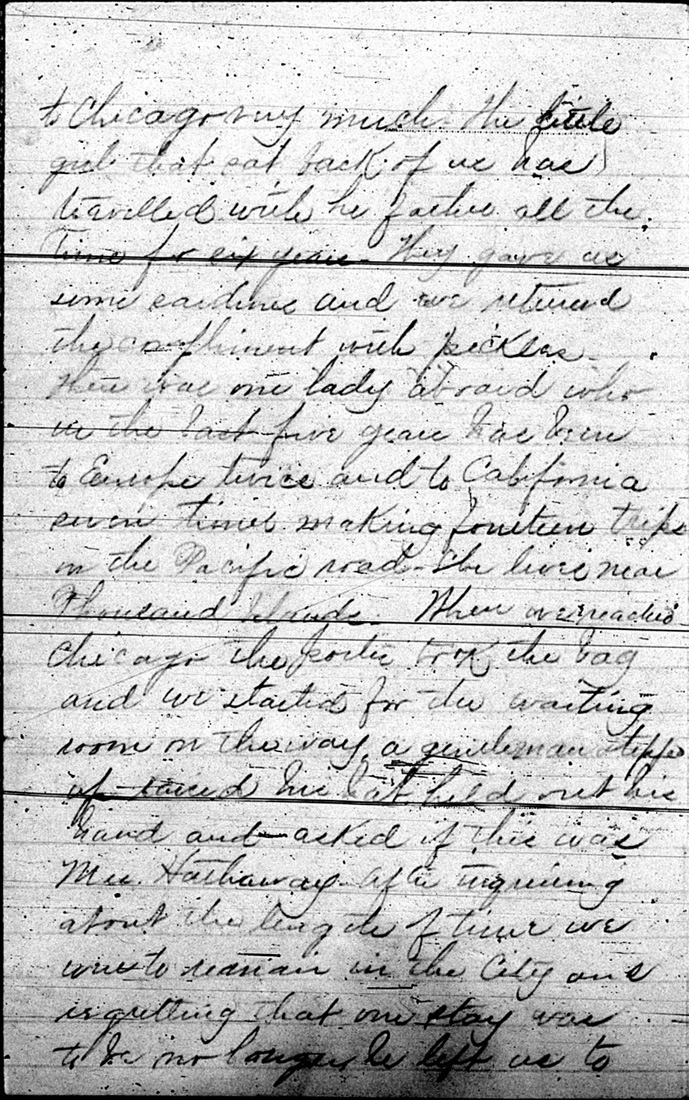 to Chicago very much. The little
girl that sat back of us has
travelled with he father all the
time for six years. They gave us
some sardines and we returned
the compliment with pickles.
There was one lady abroad who
in the last five years has been
to Europe twice and to California
seven times making fourteen trips
on the Pacific road. She lives near
Thousand Islands. When we reached
Chicago the porter took the bag
and we started for the waiting
room on the way a gentleman stepped
up raised his hat held out his
hand and asked if this was
Mrs. Hathaway. After inquiring
about the length of time we
were to remain in the City and
regretting that our stay was
to be no longer he left us to